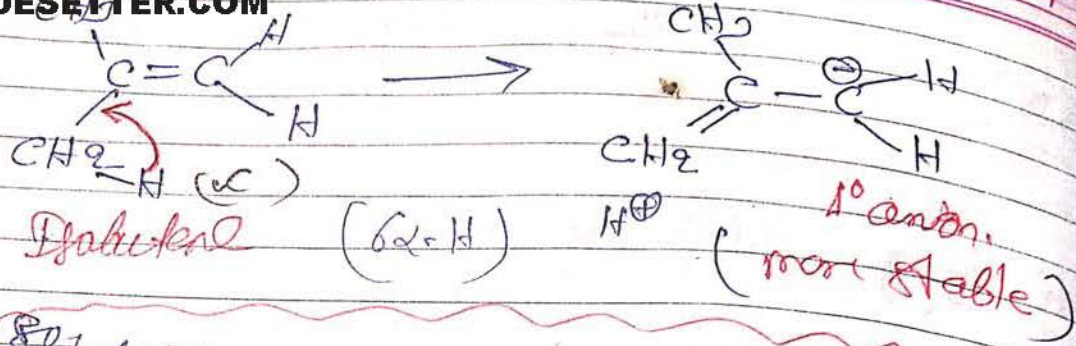 DESETTER.COM
H CH3
C = C C - C ⊖ H
H
CH2 H (α) CH2 H
Isobutene (6α-H) H⊕ 1° anion.
(more stable)